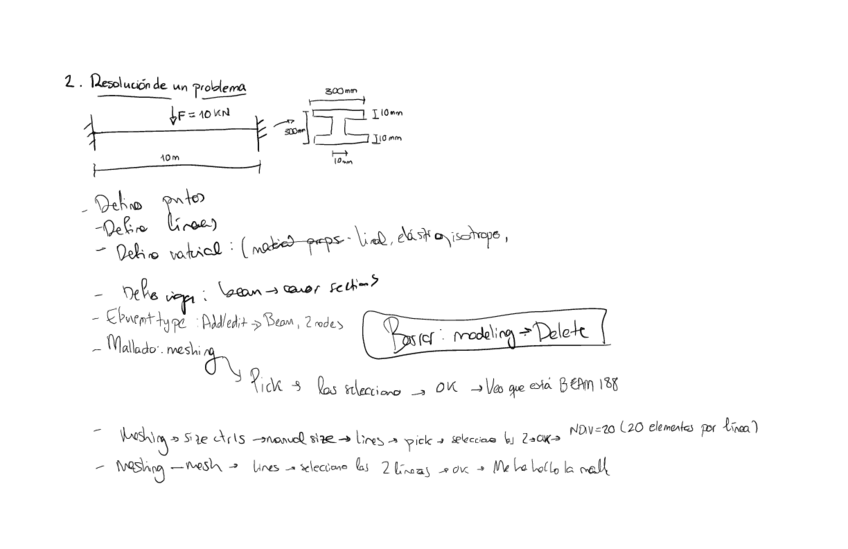 2. Resolución de un problema
300mm
F = 10 KN
10mm
300mm
10mm
10mm
10m
- Defino puntos
- Defino líneas
- Defino material: (material props - lineal, elástico, isotropo,
- Defino viga: beam → common sections
- Element type: Add/edit → Beam, 2 nodes
Borrar: modeling → Delete
- Mallado: meshing
Pick → las selecciono → OK → Veo que está BEAM 188
- Meshing → size ctrls → manual size → lines → pick → selecciono las 2 → OK → NDIV=20 (20 elementos por línea)
- Meshing - mesh → lines → selecciono las 2 líneas → OK → Me ha hecho la malla